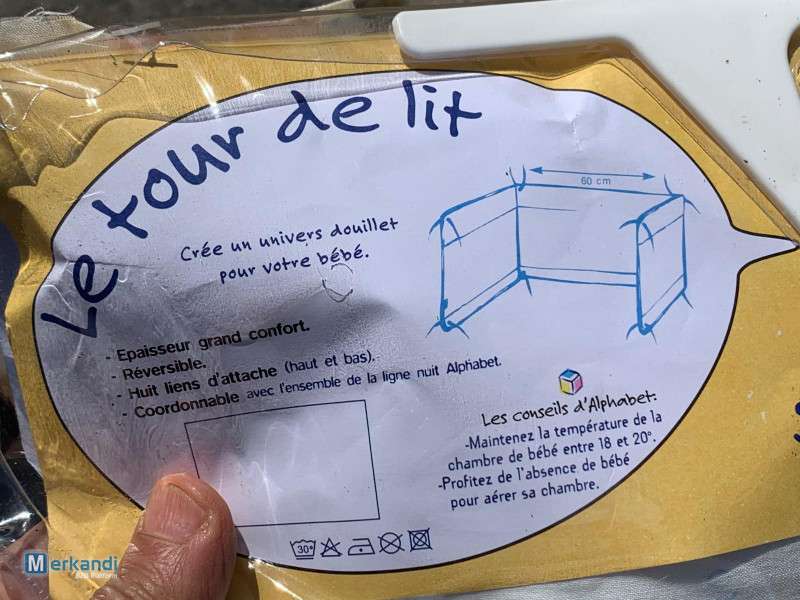 Le tour de lit
60 cm
Crée un univers douillet
pour votre bébé.
- Epaisseur grand confort.
- Réversible.
- Huit liens d'attache (haut et bas).
- Coordonnable avec l'ensemble de la ligne nuit Alphabet.
Les conseils d'Alphabet:
-Maintenez la température de la
chambre de bébé entre 18 et 20°.
-Profitez de l'absence de bébé
pour aérer sa chambre.
30°
Merkandi
B2B Platform